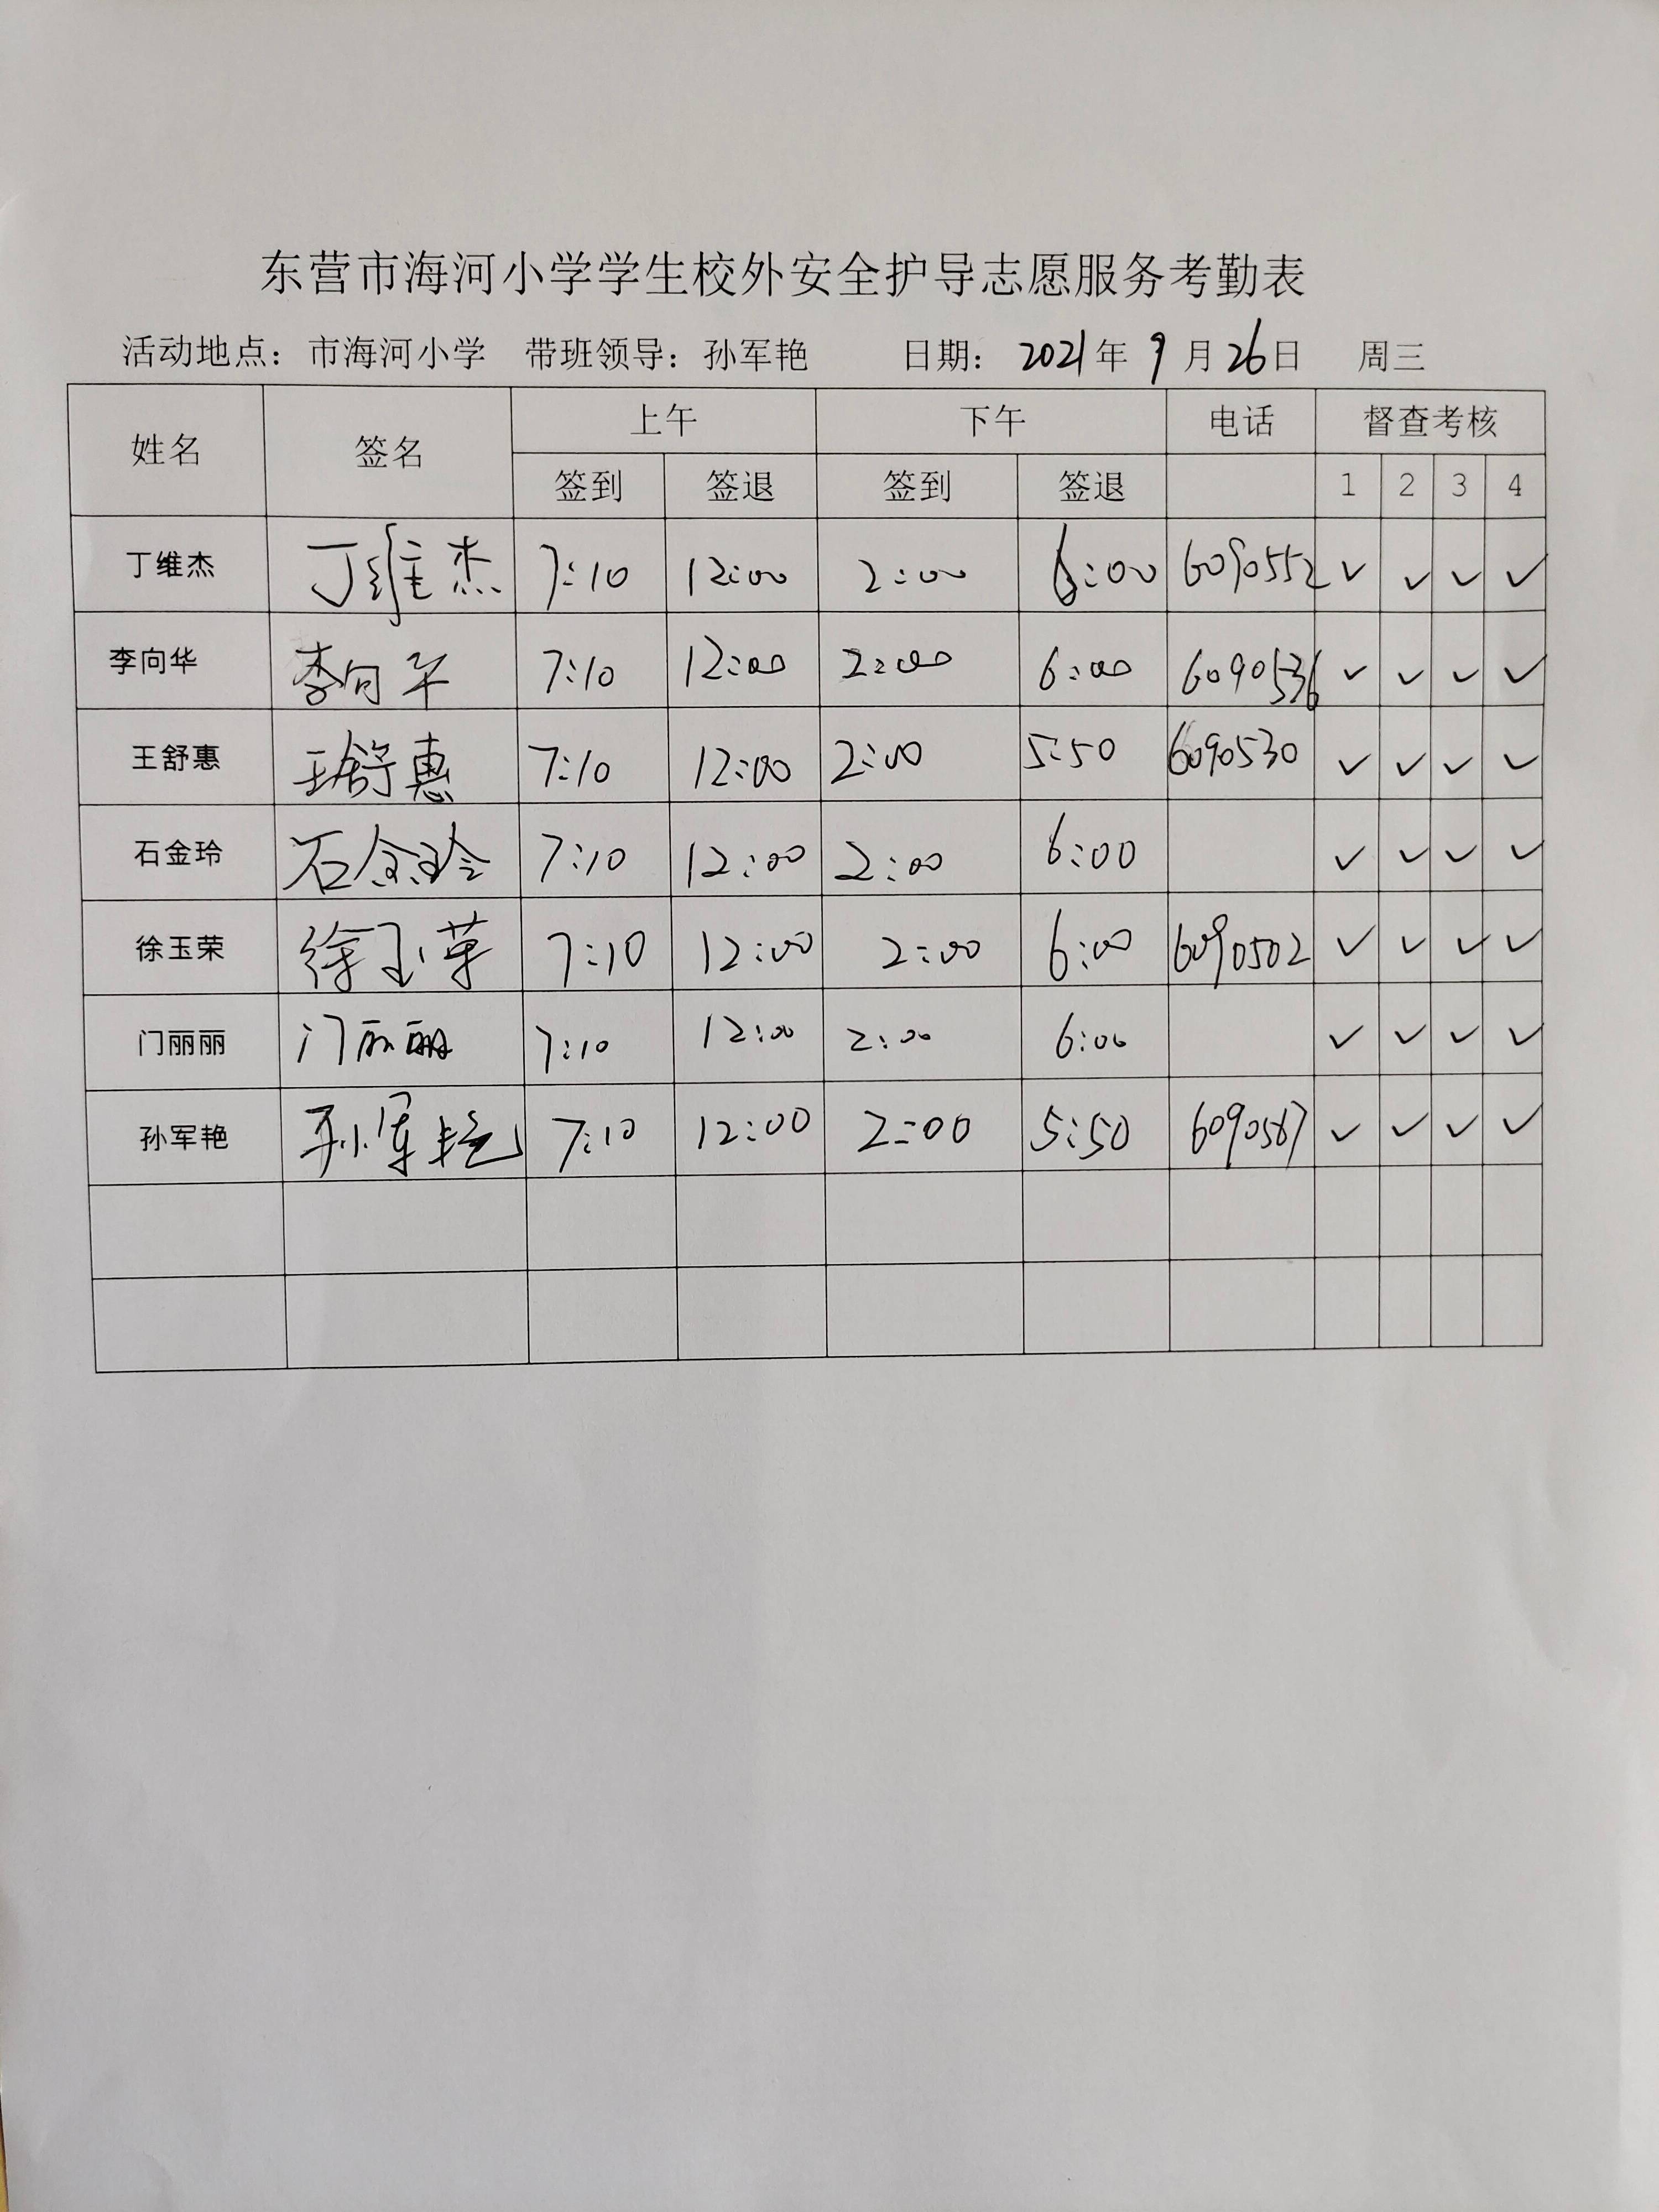 东营市海河小学学生校外安全护导志愿服务考勤表
活动地点：市海河小学 带班领导：孙军艳 日期：2021年9月26日 周三
姓名 签名 上午 下午 电话 督查考核
签到 签退 签到 签退 1 2 3 4
丁维杰 丁维杰 7:10 12:00 2:00 6:00 6090552 ✓ ✓ ✓ ✓
李向华 李向华 7:10 12:00 2:00 6:00 6090536 ✓ ✓ ✓ ✓
王舒惠 王舒惠 7:10 12:00 2:00 5:50 6090530 ✓ ✓ ✓ ✓
石金玲 石金玲 7:10 12:00 2:00 6:00 ✓ ✓ ✓ ✓
徐玉荣 徐玉荣 7:10 12:00 2:00 6:00 6090502 ✓ ✓ ✓ ✓
门丽丽 门丽丽 7:10 12:00 2:00 6:00 ✓ ✓ ✓ ✓
孙军艳 孙军艳 7:10 12:00 2:00 5:50 6090567 ✓ ✓ ✓ ✓